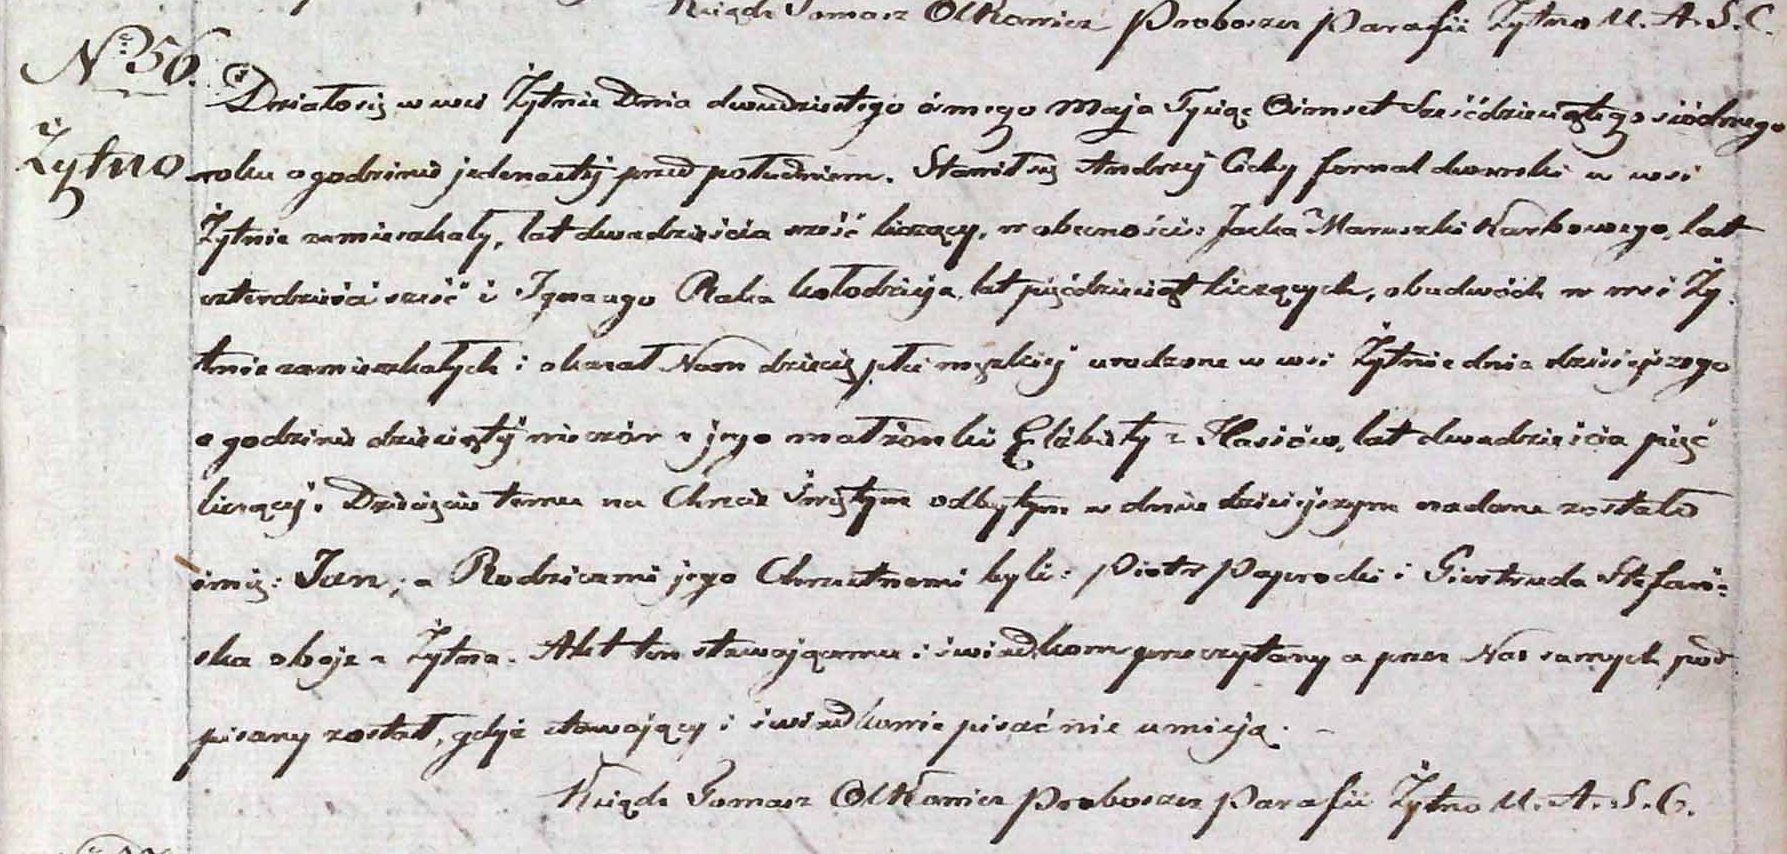 Ksiądz Tomasz Olkowicz Proboszcz Parafii Żytno U. A. S. C.
№ 56.
Żytno
Działo się w wsi Żytnie Dnia dwudziestego ósmego Maja Tysiąc Ośmset Sześćdziesiątego siódmego
roku o godzinie jedenastej przed południem. Stawił się Andrzej Cichy fornal dworski w wsi
Żytnie zamieszkały, lat dwadzieścia sześć liczący, w obecności: Jacka Maruszki Karbowego, lat
czterdzieści sześć i Ignacego Raka kołodzieja, lat pięćdziesiąt liczących, obudwóch w wsi Ży
tnie zamieszkałych i okazał Nam dziecię płci męzkiej urodzone w wsi Żytnie dnia dzisiejszego
o godzinie dziesiątej wieczór z jego małżonki Elżbiety z Hasiów, lat dwadzieścia pięć
liczącej. Dziecięciu temu na Chrzcie Świętym odbytym w dniu dzisiejszym nadane zostało
imię: Jan; a Rodzicami jego Chrzestnemi byli: Piotr Paprocki i Giertruda Stefań-
ska oboje z Żytna. Akt ten stawającemu i świadkom przeczytany a przez Nas samych pod
pisany został, gdyż stawający i świadkowie pisać nie umieją. -
Ksiądz Tomasz Olkowicz Proboszcz Parafii Żytno U. A. S. C.